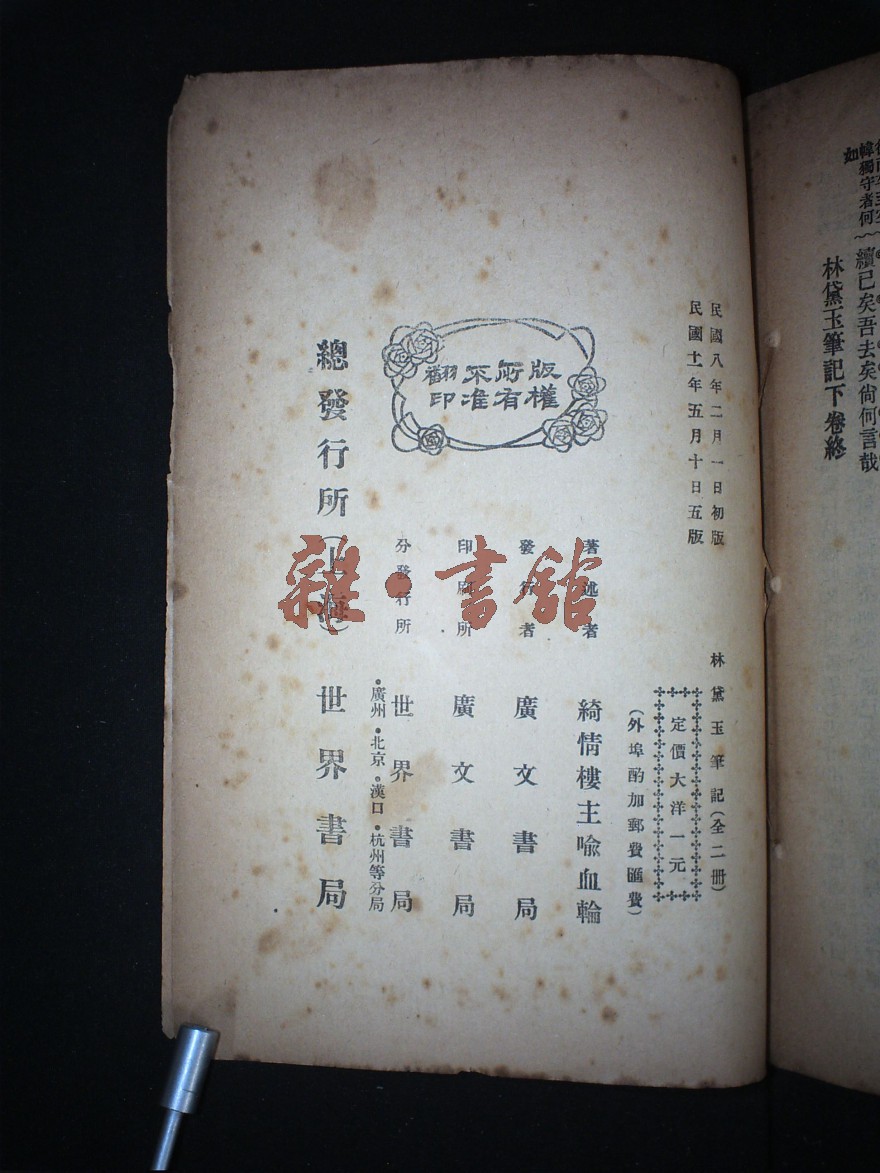 如
幃獨守者何
續已矣吾去矣尙何言哉
林黛玉筆記下卷終
民國八年二月一日初版
民國十一年五月十日五版
林黛玉筆記(全二冊)
定價大洋一元
(外埠酌加郵費匯費)
版權所有
翻印不准
著述者 綺情樓主喻血輪
發行者 廣文書局
印刷所 廣文書局
分發行所 世界書局
•廣州•北京•漢口•杭州等分局
總發行所(上海) 世界書局
雜•書館